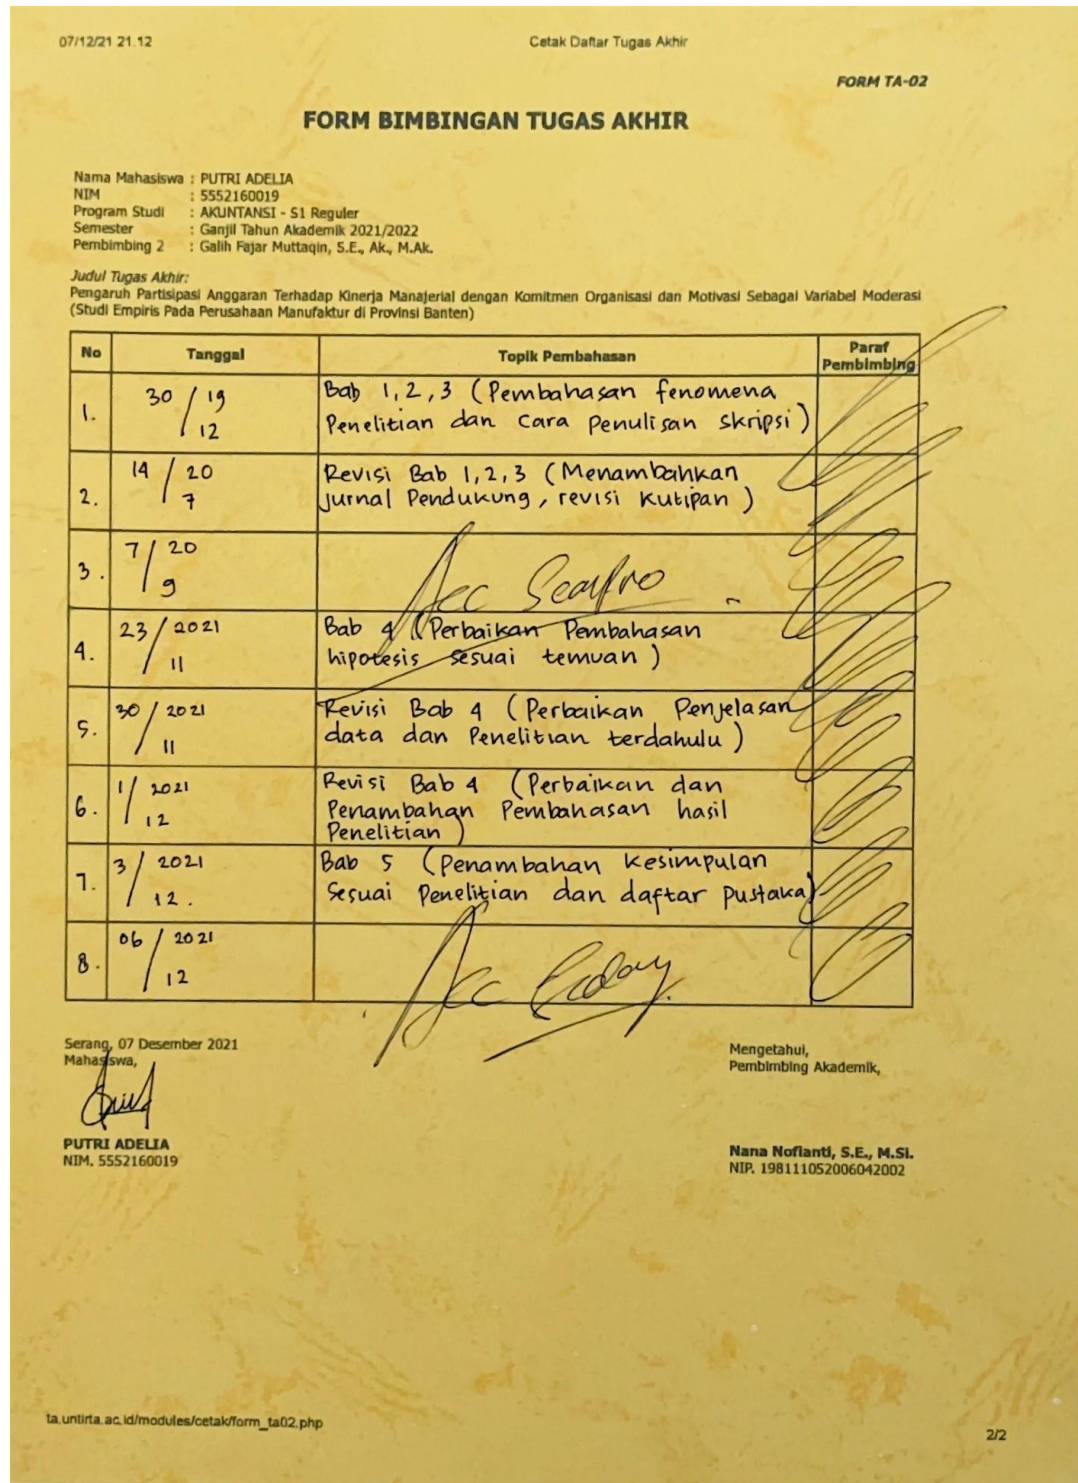 07/12/21 21.12
Cetak Daftar Tugas Akhir
FORM TA-02
FORM BIMBINGAN TUGAS AKHIR
Nama Mahasiswa : PUTRI ADELIA
NIM : 5552160019
Program Studi : AKUNTANSI - S1 Reguler
Semester : Ganjil Tahun Akademik 2021/2022
Pembimbing 2 : Galih Fajar Muttaqin, S.E., Ak., M.Ak.
Judul Tugas Akhir:
Pengaruh Partisipasi Anggaran Terhadap Kinerja Manajerial dengan Komitmen Organisasi dan Motivasi Sebagai Variabel Moderasi
(Studi Empiris Pada Perusahaan Manufaktur di Provinsi Banten)
No Tanggal Topik Pembahasan Paraf Pembimbing
1. 30/12 19 Bab 1, 2, 3 (Pembahasan fenomena
Penelitian dan Cara Penulisan Skripsi)
2. 14/7 20 Revisi Bab 1, 2, 3 (Menambahkan
jurnal Pendukung, revisi Kutipan)
3. 7/9 20 Acc
4. 23/11 2021 Bab 4 (Perbaikan Pembahasan
hipotesis sesuai temuan)
5. 30/11 2021 Revisi Bab 4 (Perbaikan Penjelasan
data dan Penelitian terdahulu)
6. 1/12 2021 Revisi Bab 4 (Perbaikan dan
Penambahan Pembahasan hasil
Penelitian)
7. 3/12. 2021 Bab 5 (Penambahan Kesimpulan
Sesuai Penelitian dan daftar Pustaka)
8. 06/12 2021 Acc
Serang, 07 Desember 2021
Mahasiswa,
PUTRI ADELIA
NIM. 5552160019
Mengetahui,
Pembimbing Akademik,
Nana Nofianti, S.E., M.Si.
NIP. 198111052006042002
ta.untirta.ac.id/modules/cetak/form_ta02.php
2/2